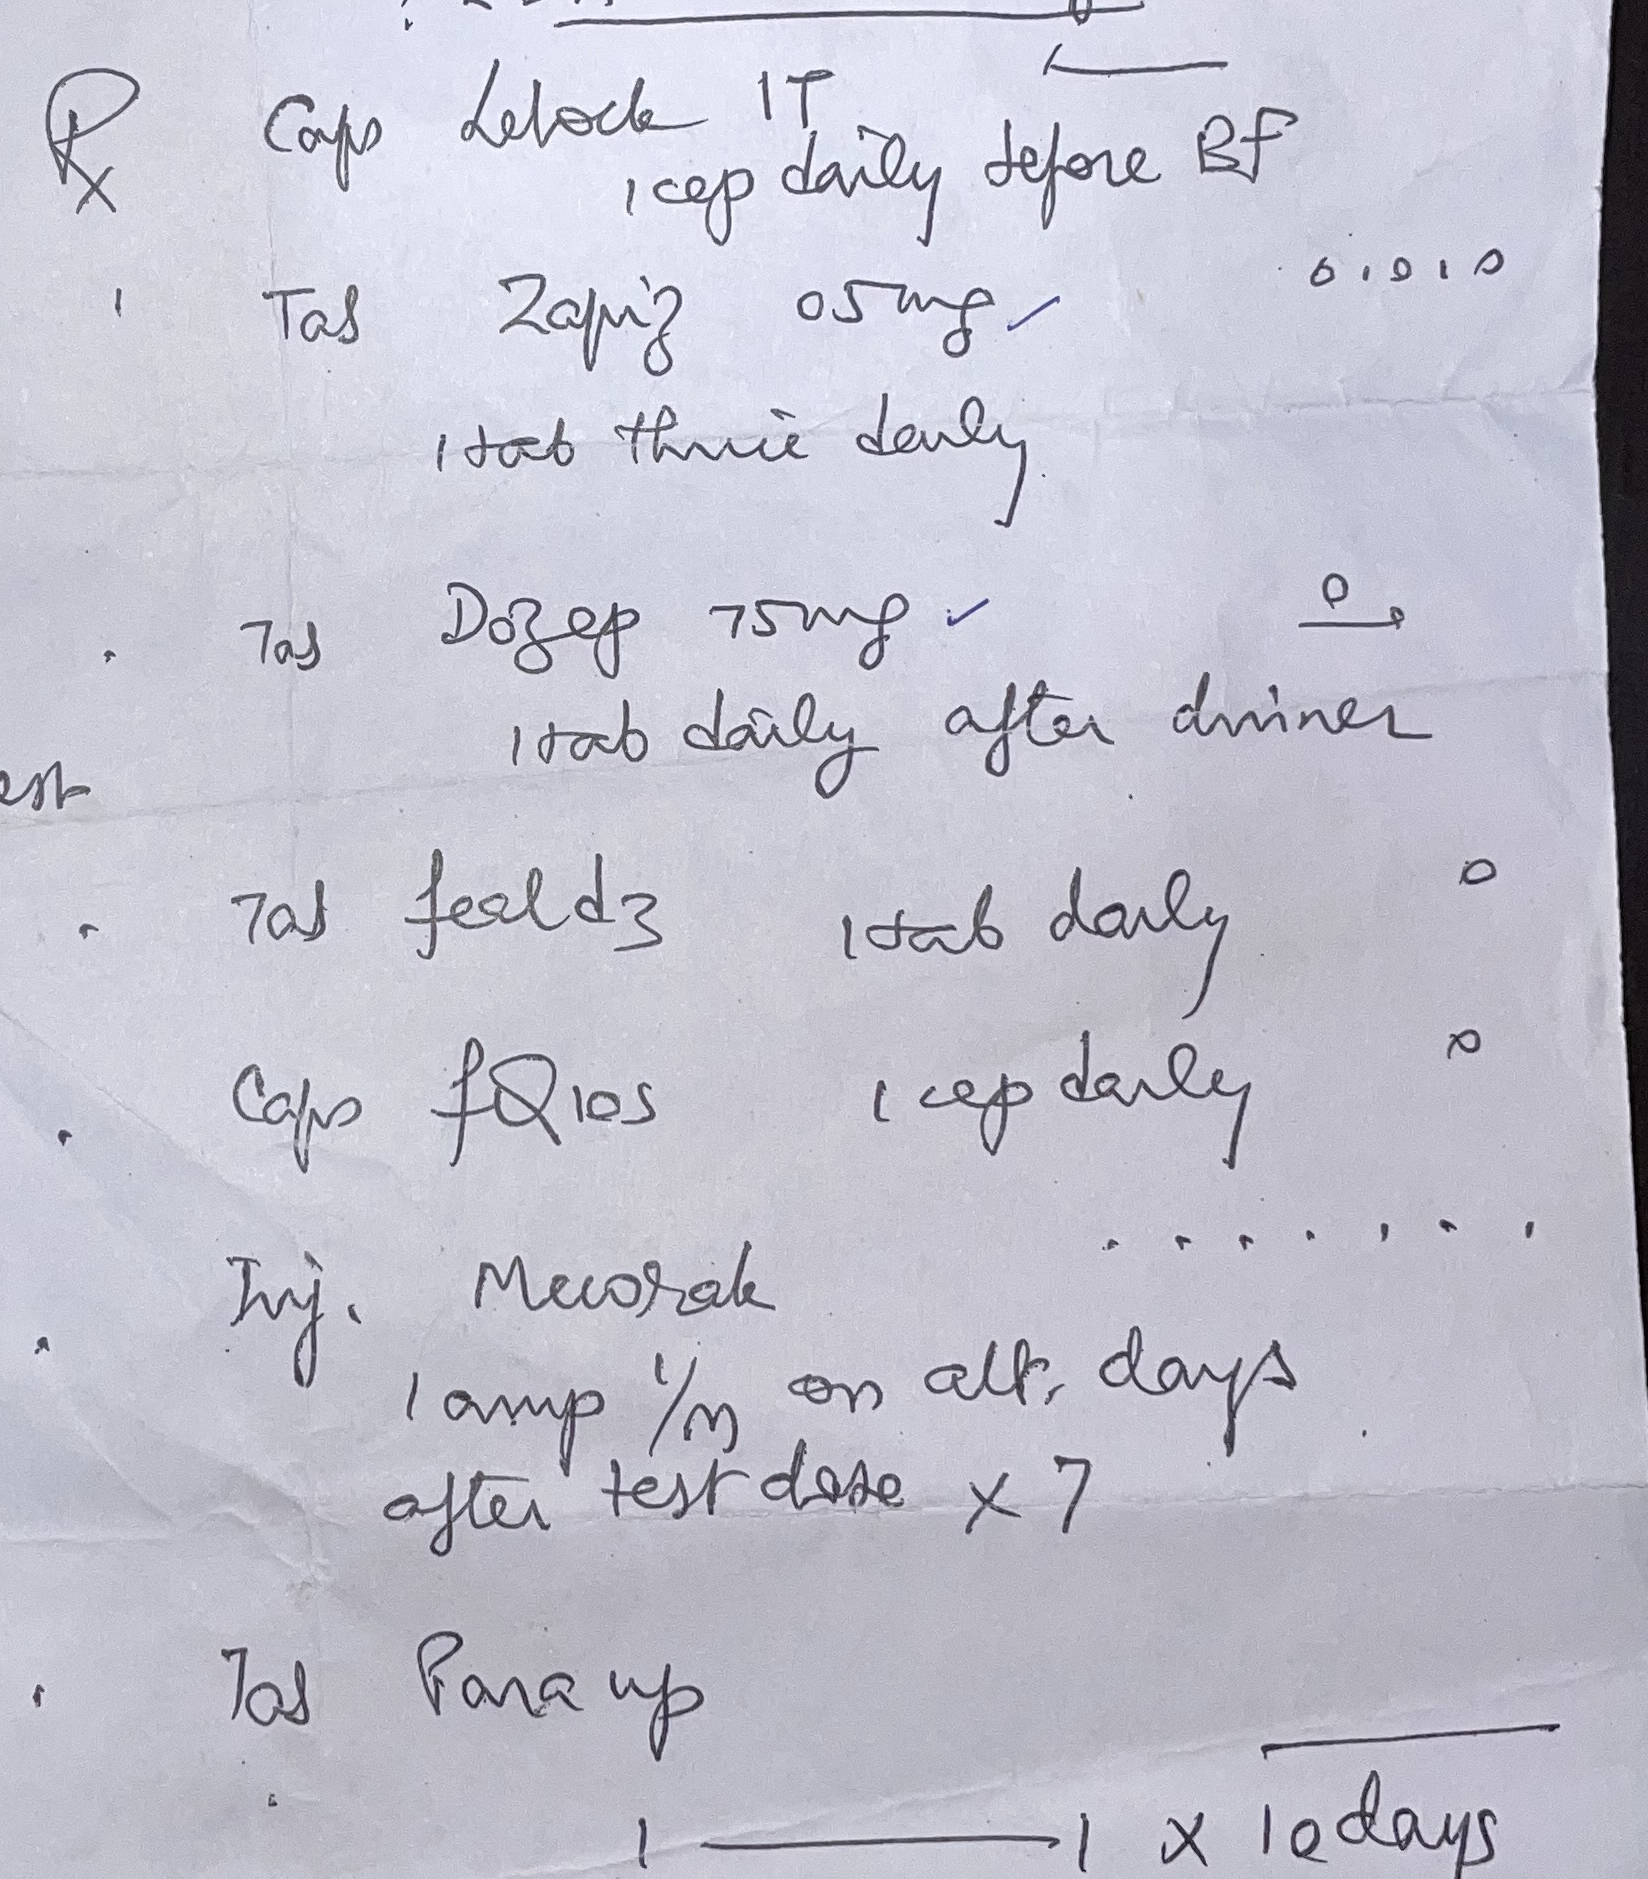 Rx Caps Lelock IT
1 cap daily before BF
Tab Zapiz 05mg
0 1 0 1 0
1 tab thrice daily
Tab Dozep 75mg
1 tab daily after dinner
est
Tab feeld3 1 tab daily
Caps fQ10s 1 cap daily
Inj.
1 amp I/M on alt. days
after test dose x 7
Tab Para up
1 — 1 x 10 days